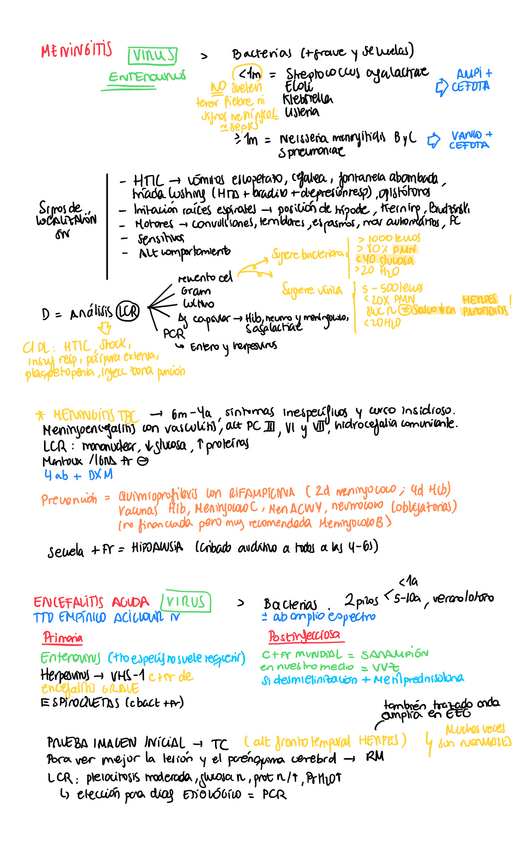 MENINGITIS VIRUS > Bacterias (+grave y secuelas)
ENTEROVIRUS
<1m = Streptococcus agalactiae
E coli
Klebsiella
Listeria
AMPI + CEFOTA
NO suelen
tener fiebre ni
signos meníngeos
≈ sepsis
≥1m = Neisseria meningitidis B y C
S pneumoniae
VANCO + CEFOTA
Signos de
LOCALIZACIÓN
- HTIC → vómitos escopetazo, cefalea, fontanela abombada,
triada Cushing (HTA + bradic + depresión resp), opistótonos
- Irritación raíces espinales → posición de trípode, Kernig, Brudzinski
- Motores → convulsiones, temblores, espasmos, mov automáticos, PC
- Sensitivos
- Alt comportamiento
D = Análisis LCR
recuento cel
Gram
Cultivo
Ag capsular → Hib, neumo y meningococo,
S agalactiae
PCR
↳ Entero y herpesvirus
Sugiere bacteriana
>1000 leucos
>80% PMN
<40 glucosa
>20 H2O
Sugiere vírica
5-500 leucos
<20% PMN
gluc N → Salvo en HERPES y PAROTIDITIS!
<20 H2O
CI PL: HTIC, shock,
insuf resp, púrpura extensa,
plaquetopenia, infecc zona punción
* MENINGITIS TBC → 6m-4a, síntomas inespecíficos y curso insidioso.
Meningoencefalitis con vasculitis, alt PC III, VI y VII, hidrocefalia comunicante.
LCR: mononuclear, ↓glucosa, ↑proteínas
Mantoux / IGRA fr ⊖
4 ab + DXM
Prevención = Quimioprofilaxis con RIFAMPICINA (2d meningococo; 4d Hib)
Vacunas Hib, Meningococo C, MenACWY, neumococo (obligatorias)
(no financiada pero muy recomendada Meningococo B)
Secuela + Fr = HIPOACUSIA (Cribado auditivo a todos a las 4-6s)
ENCEFALITIS AGUDA VIRUS > Bacterias. 2 picos <1a
5-10a, verano/otoño
TTO EMPÍRICO ACICLOVIR IV ± ab amplio espectro
Primaria
Enterovirus (tto específico suele requerir)
Herpesvirus → VHS-1 c+fr de
encefalitis GRAVE
ESPIROQUETAS (cbact +fr)
Postinfecciosa
C+Fr MUNDIAL = SARAMPIÓN
en nuestro medio = VVZ
Si desmielinización + Metilprednisolona
también trazado onda
amplia en EEG
PRUEBA IMAGEN INICIAL → TC (alt frontotemporal HERPES)
Muchas veces
son normales
Para ver mejor la lesión y el parénquima cerebral → RM
LCR: pleiocitosis moderada, glucosa n, prot n/↑, Pr H2O↑
↳ elección para diag ETIOLÓGICO = PCR